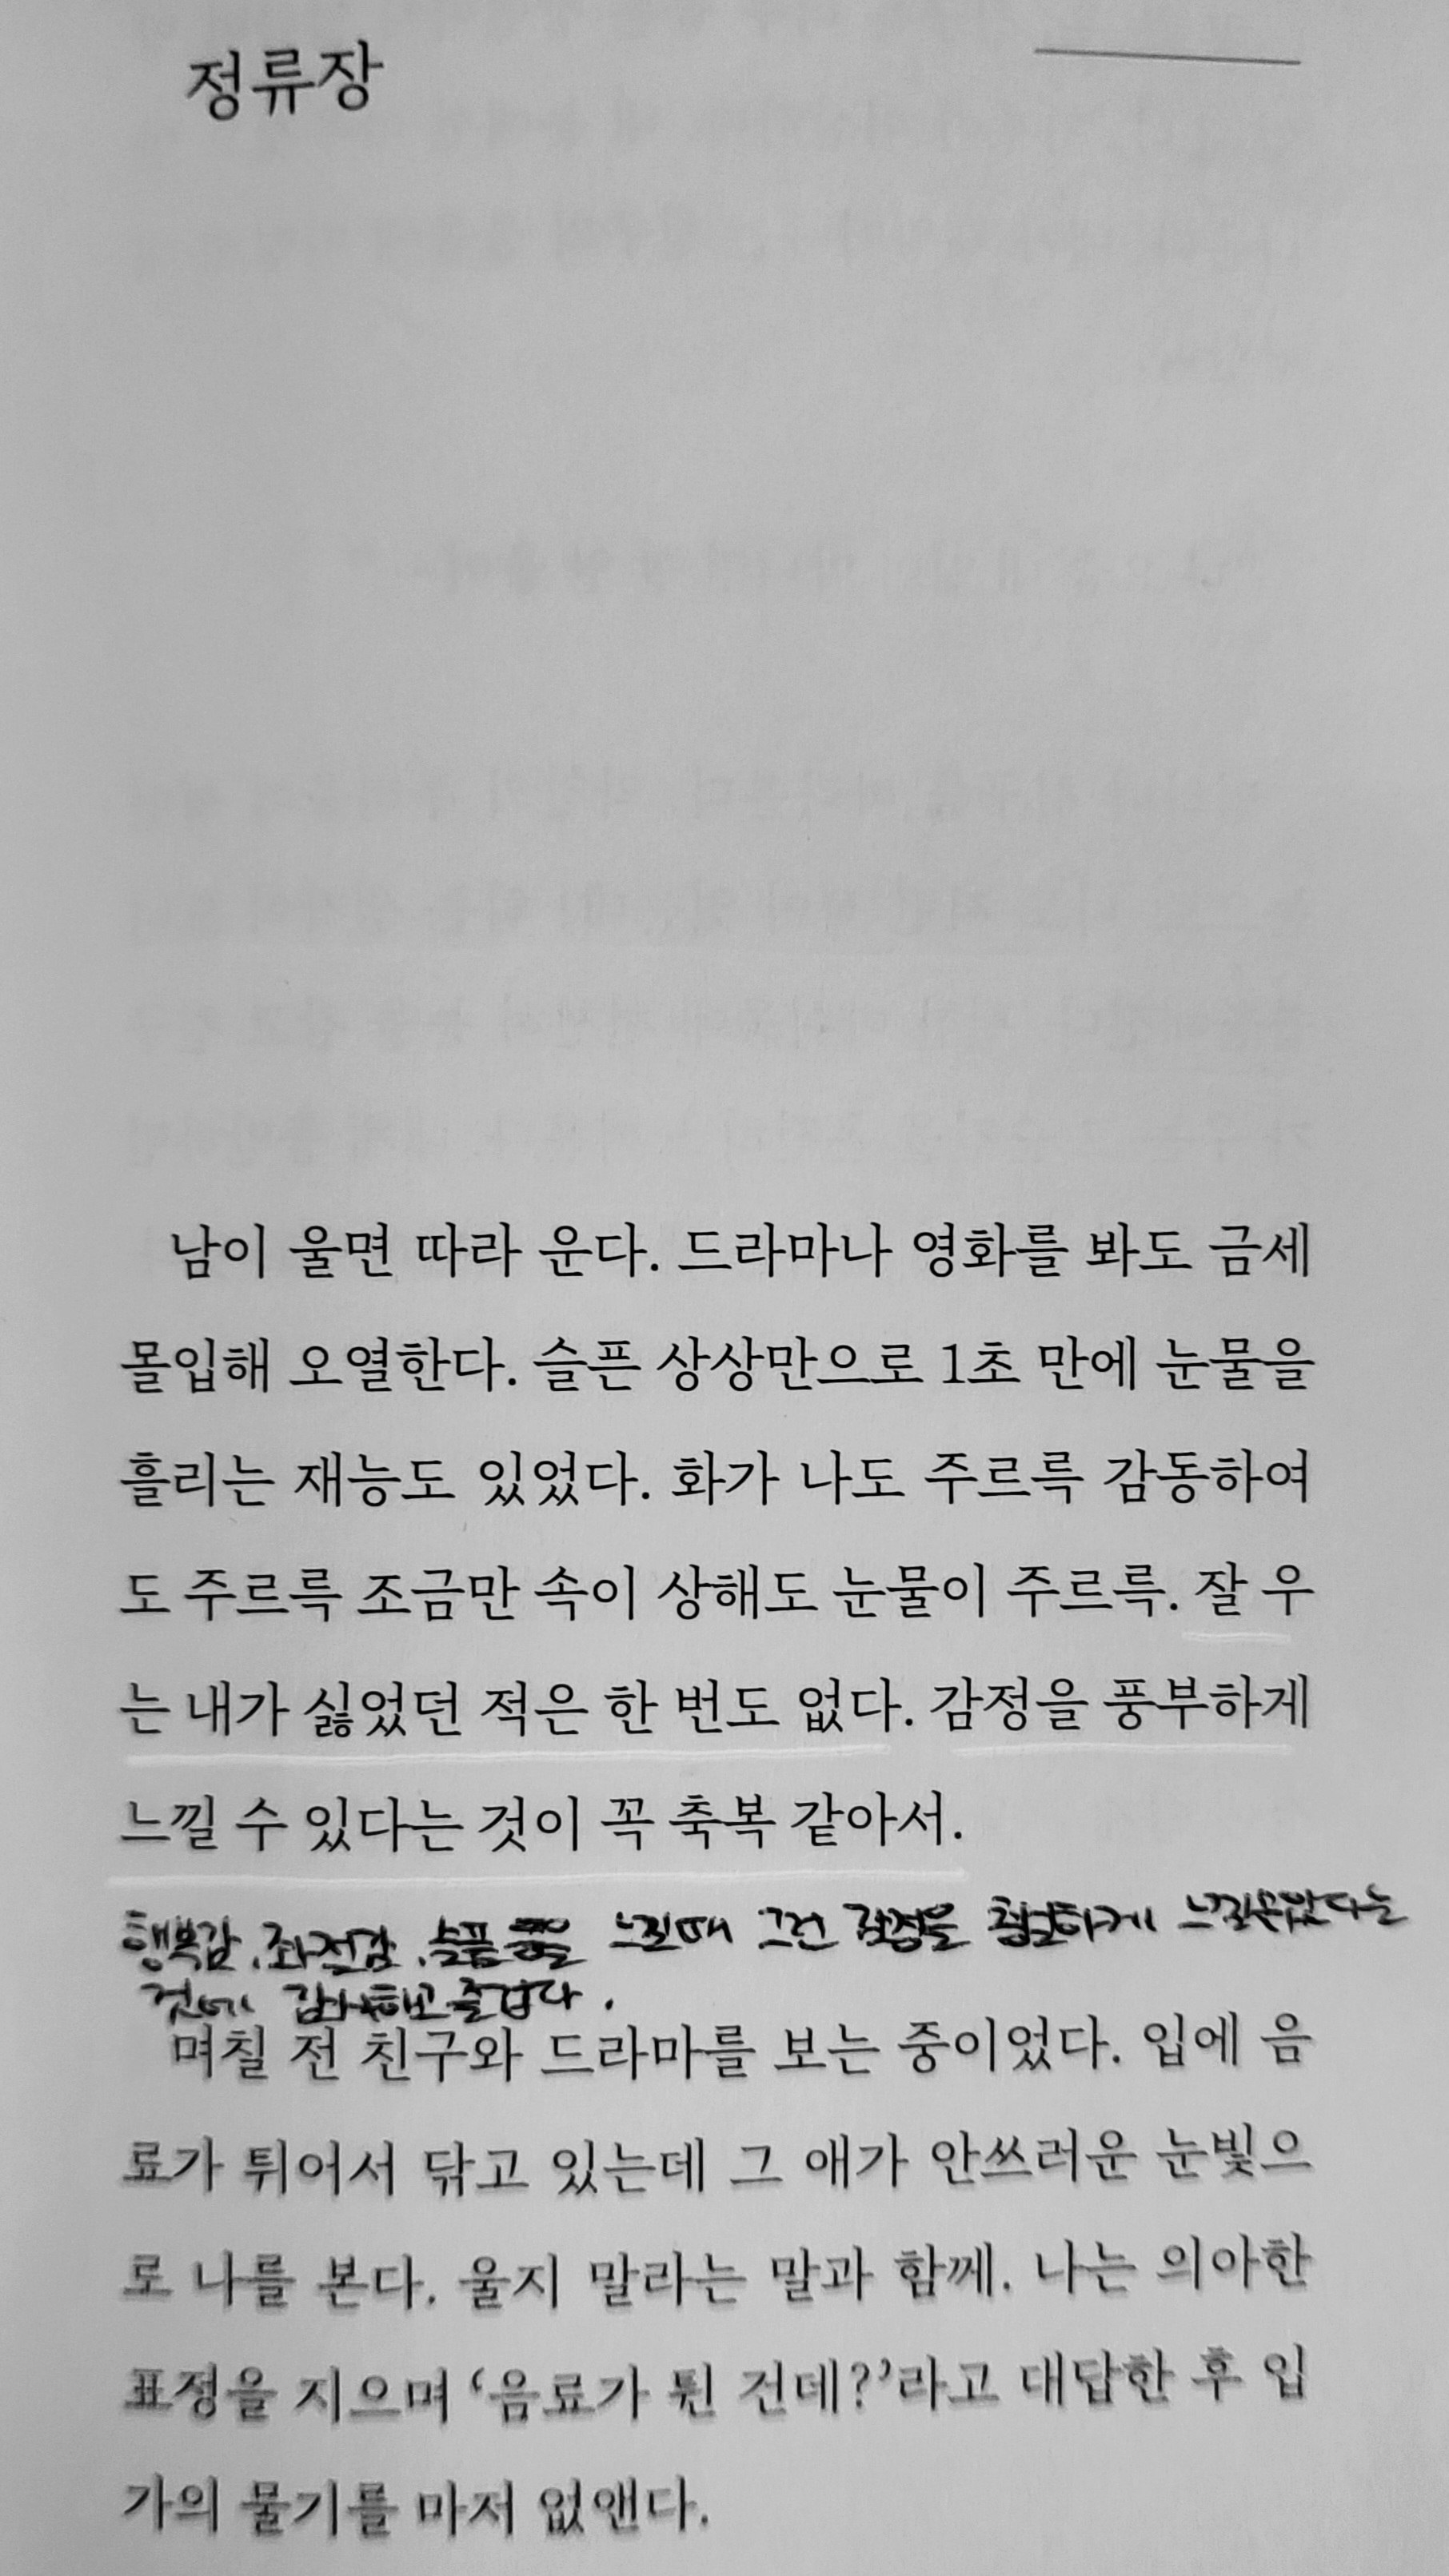 정류장
남이 울면 따라 운다. 드라마나 영화를 봐도 금세
몰입해 오열한다. 슬픈 상상만으로 1초 만에 눈물을
흘리는 재능도 있었다. 화가 나도 주르륵 감동하여
도 주르륵 조금만 속이 상해도 눈물이 주르륵. 잘 우
는 내가 싫었던 적은 한 번도 없다. 감정을 풍부하게
느낄 수 있다는 것이 꼭 축복 같아서.
행복감, 좌절감, 슬픔 느낄때 그런 감정을 하게
것에 감사하고 즐겁다.
며칠 전 친구와 드라마를 보는 중이었다. 입에 음
료가 튀어서 닦고 있는데 그 애가 안쓰러운 눈빛으
로 나를 본다. 울지 말라는 말과 함께. 나는 의아한
표정을 지으며 ‘음료가 튄 건데?’라고 대답한 후 입
가의 물기를 마저 없앤다.